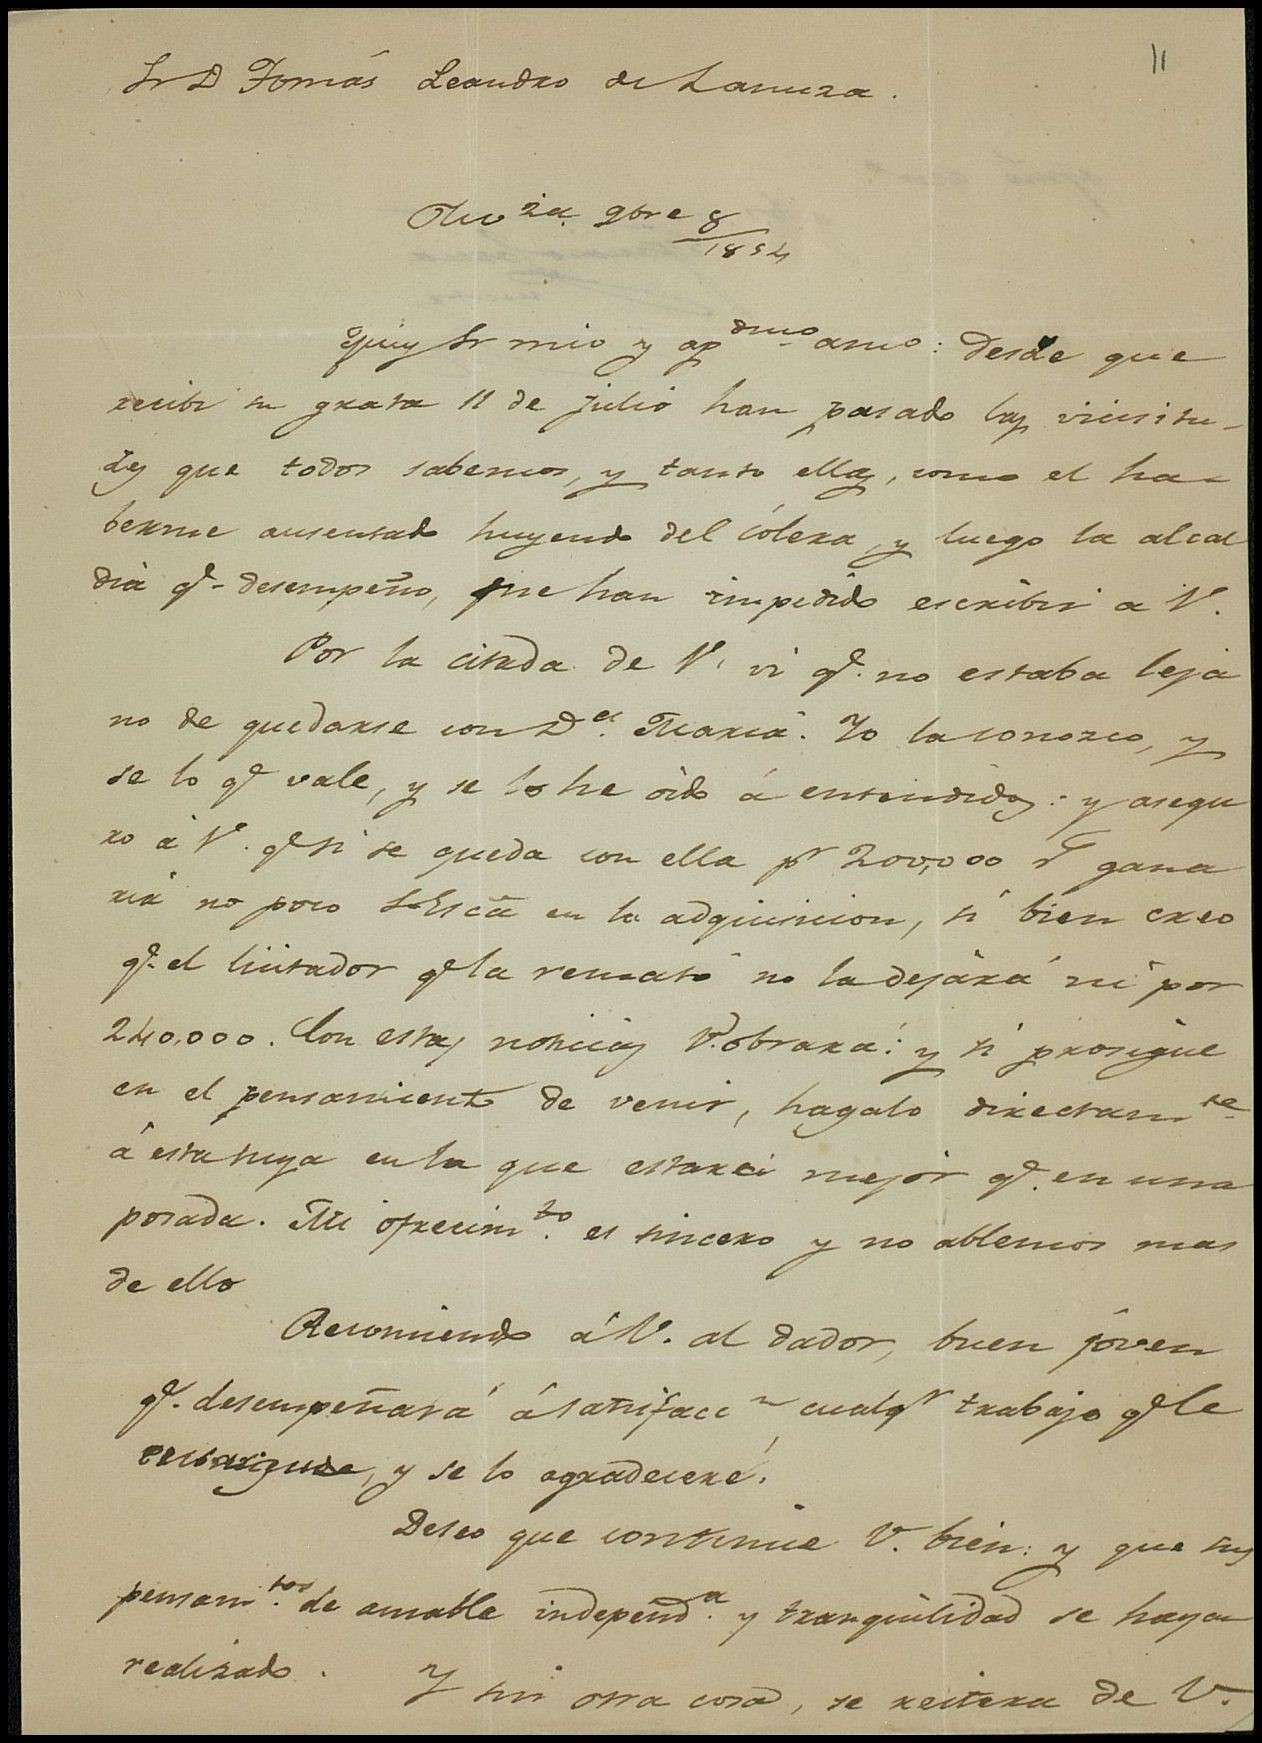 11
Sr D Tomás Leandro de Lanuza.
9bre 8/1854
Muy Sr mio y ap dmo amo: desde que
recibi su grata 11 de julio han pasado las vicisitu-
des que todos sabemos, y tanto ellas, como el ha-
berme ausentado huyendo del cólera, y luego la alcal
dia qe desempeño, me han impedido escribir a V.
Por la citada de V. vi qe. no estaba leja
no de quedarse con Da. Maria. Yo la conozco, y
se lo qe vale, y se lo he oido á entendidos: y asegu
ro á V. qe si se queda con ella pr 200,000 rs gana
ria no poco en la adquisicion, si bien creo
qe. el licitador qe la remató no la dejará ni por
240.000. Con estas noticias V. obrará: y si prosigue
en el pensamiento de venir, hagalo directamte
á esta suya en la que estará mejor qe. en una
posada. Mi ofrecimto. es sincero y no ablemos mas
de ello
Recomiendo á V. al dador, buen jóven
qe. desempeñará á satisfaccn cualqr trabajo qe le
encargue, y se lo agradeceré.
Deseo que continúe V. bien: y que sus
pensamtos. de amable independa. y tranquilidad se hayan
realizado.
Y sin otra cosa, se reitera de V.